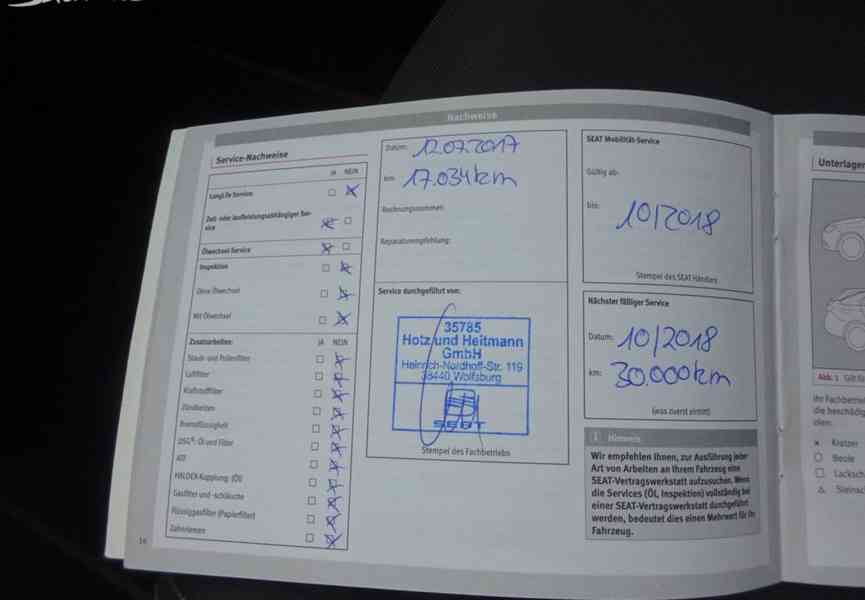 Nachweise
Service-Nachweise
JA NEIN
LongLife Service
Zeit- oder laufleistungsabhängiger Ser-
vice
Ölwechsel-Service
Inspektion
Ohne Ölwechsel
Mit Ölwechsel
Zusatzarbeiten: JA NEIN
Staub- und Pollenfilter
Luftfilter
Kraftstofffilter
Zündkerzen
Bremsflüssigkeit
DSG®: Öl und Filter
ATF
HALDEX-Kupplung (Öl)
Gasfilter und -schläuche
Flüssiggasfilter (Papierfilter)
Zahnriemen
14
Datum: 12.07.2017
km: 17.034km
Rechnungsnummer:
Reparaturempfehlung:
Service durchgeführt von:
35785
Hotz und Heitmann
GmbH
Heinrich-Nordhoff-Str. 119
38440 Wolfsburg
SEAT
Stempel des Fachbetriebs
SEAT Mobilität-Service
Gültig ab:
bis: 10/2018
Stempel des SEAT Händlers
Nächster fälliger Service
Datum: 10/2018
km: 30.000km
(was zuerst eintritt)
i Hinweis
Wir empfehlen Ihnen, zur Ausführung jeder
Art von Arbeiten an Ihrem Fahrzeug eine
SEAT-Vertragswerkstatt aufzusuchen. Wenn
die Services (Öl, Inspektion) vollständig bei
einer SEAT-Vertragswerkstatt durchgeführt
werden, bedeutet dies einen Mehrwert für Ihr
Fahrzeug.
Unterlagen
Abb. 1 Gilt fü
Ihr Fachbetrie
die beschädig
olen:
× Kratzer
○ Beule
□ Lacksch
△ Steinsc